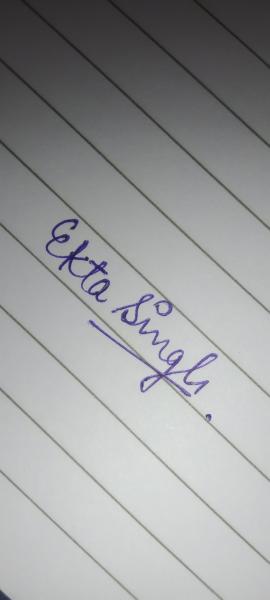 Ekta Singh.